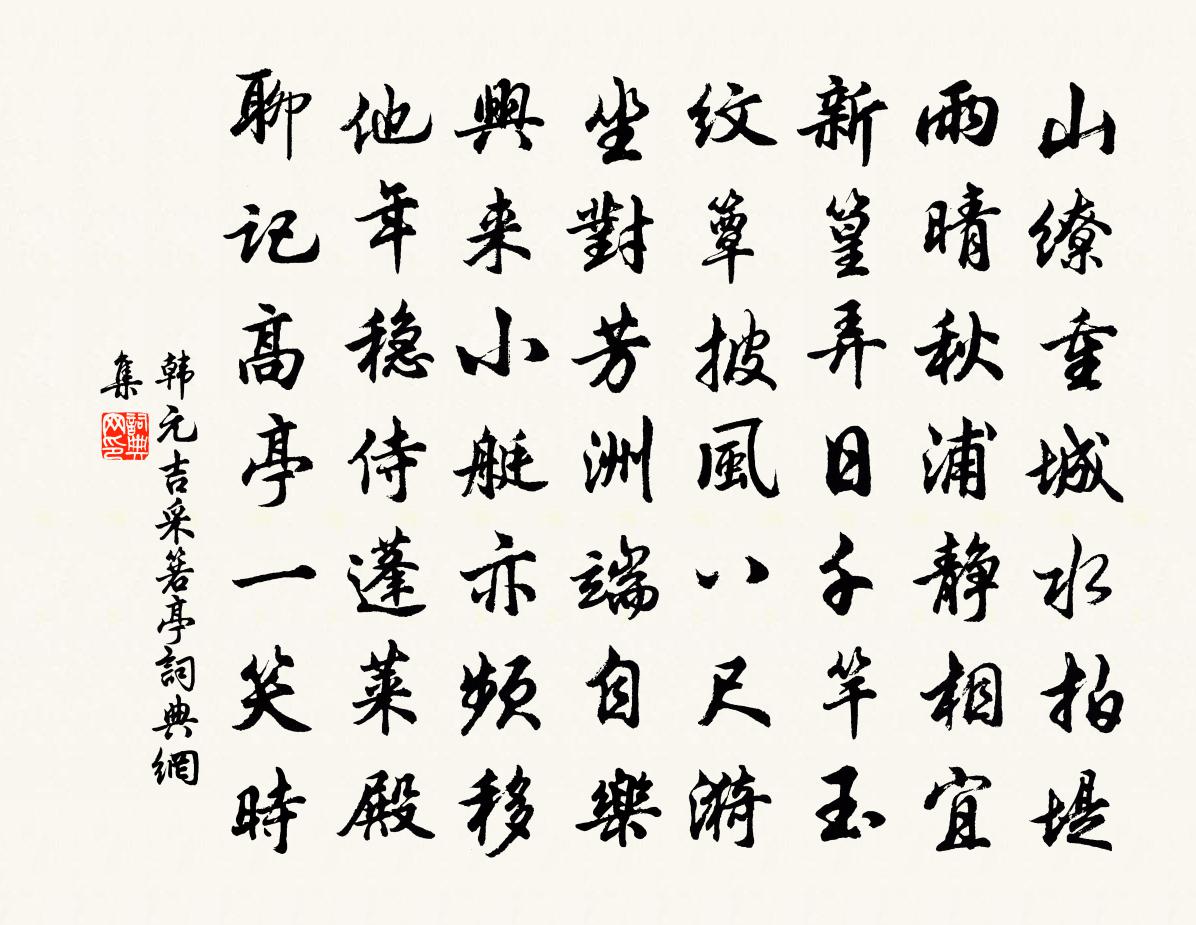 山缭重城水拍堤
雨晴秋浦静相宜
新篁弄日千竿玉
纹簟披風八尺漪
坐對芳洲端自樂
興来小艇亦頻移
他年稳侍蓬莱殿
聊记高亭一笑時
韩元吉采箬亭詞典網
集
詞典
网印